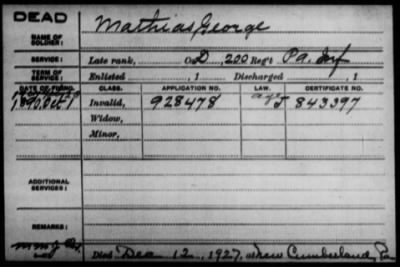 DEAD
Mathias George
NAME OF SOLDIER:
SERVICE: Late rank, Co D, 200 Reg't Pa. Inf
TERM OF SERVICE: Enlisted , 1 Discharged , 1
DATE OF FILING. CLASS. APPLICATION NO. LAW. CERTIFICATE NO.
1890 Oct Invalid, 928478 J 843397
Widow,
Minor,
ADDITIONAL SERVICES:
REMARKS:
Died Dec 12, 1927, at New Cumberland, Pa